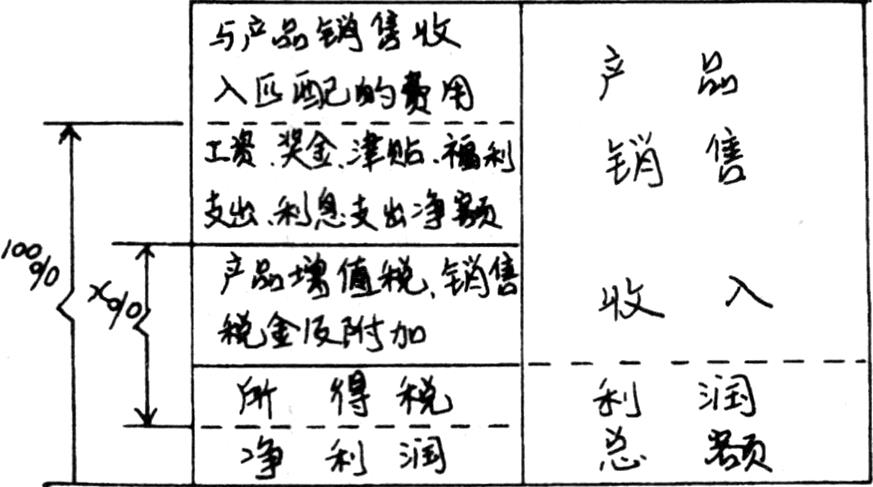 与产品销售收
入匹配的费用
工资、奖金、津贴、福利
支出、利息支出净额
产品增值税、销售
税金及附加
所得税
净利润
产品
销售
收入
利润
总额
100%
X%